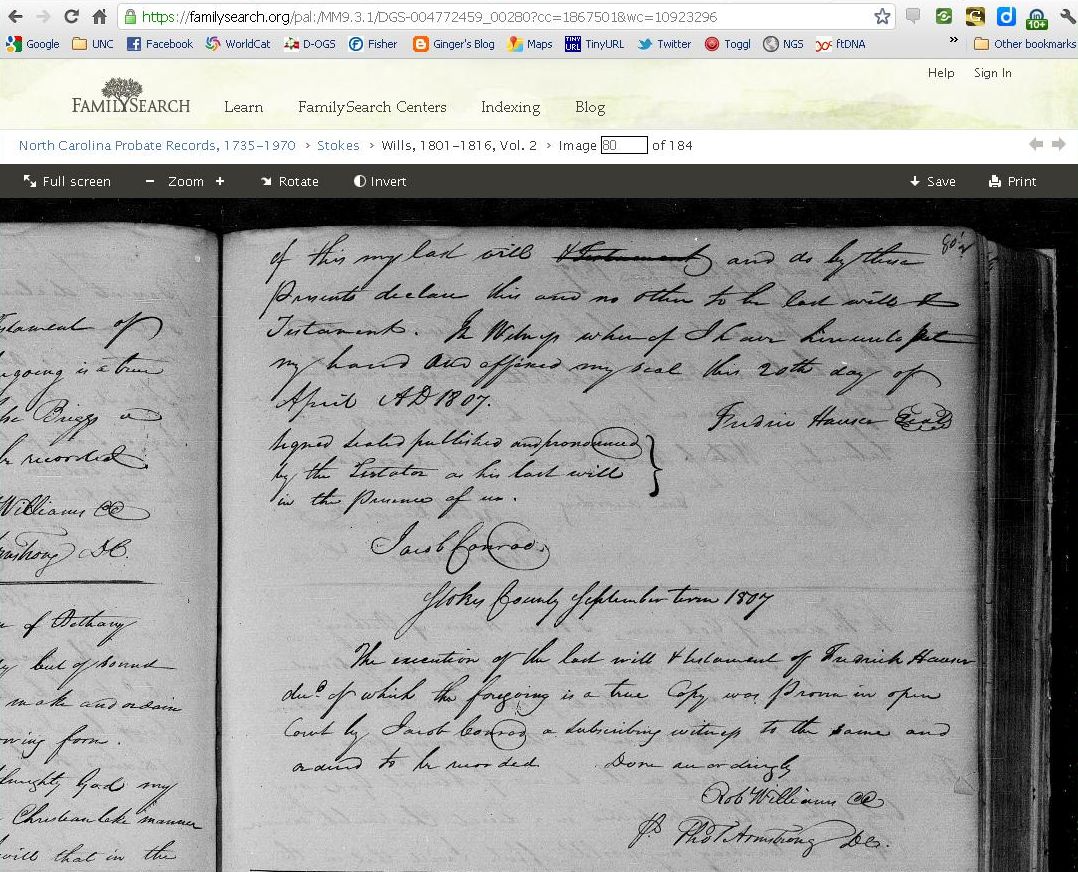 https://familysearch.org/pal:/MM9.3.1/DGS-004772459_00280?cc=1867501&wc=10923296
10+
Google UNC Facebook WorldCat D-OGS Fisher Ginger's Blog Maps TINY URL TinyURL Twitter Toggl NGS ftDNA » Other bookmarks
Help Sign In
FAMILYSEARCH Learn FamilySearch Centers Indexing Blog
North Carolina Probate Records, 1735–1970 › Stokes › Wills, 1801–1816, Vol. 2 › Image 80 of 184
Full screen − Zoom + Rotate Invert Save Print
stament of
egoing is a true
Briggs
be recorded
Williams CC
mstrong DC.
of Bethany
but of sound
make and ordain
owing form.
lmighty God my
Christianlike manner
will that in the
of this my last will & Testament and do by these
Presents declare this and no other to be last will &
Testament. In Witness whereof I have hereunto set
my hand and affixed my seal this 20th day of
April AD 1807.
Fredric Hauser Seal
Signed sealed published and pronounced
by the Testator as his last will
in the Presence of us.
Jacob Conrad.
Stokes County September term 1807
The execution of the last will & testament of Fredrick Hauser
decd. of which the foregoing is a true Copy was Proven in open
Court by Jacob Conrad a subscribing witness to the same and
ordered to be recorded. Done accordingly
Rob Williams CC
Pr Tho T Armstrong DC.